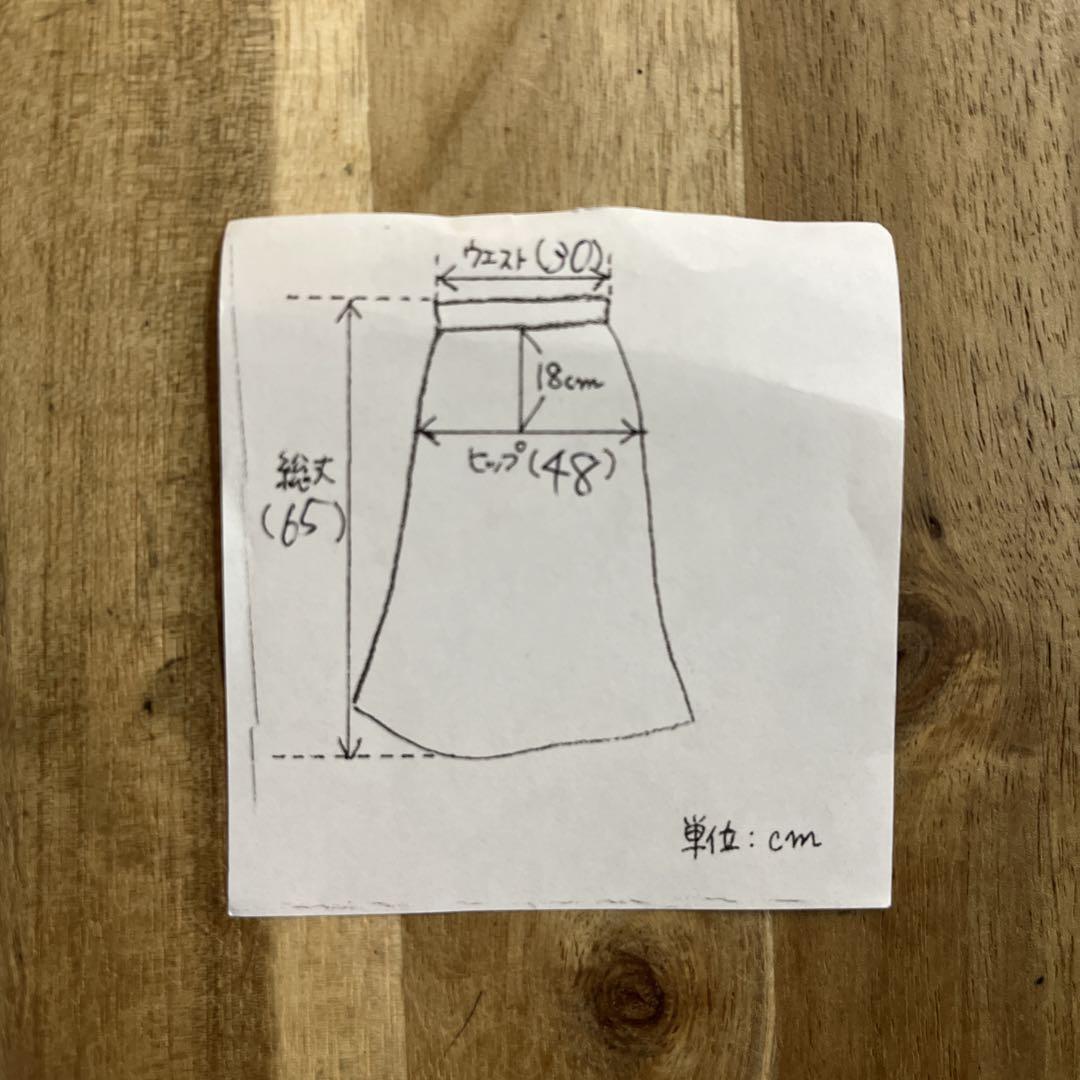 ウエスト(30)
18cm
ヒップ(48)
総丈
(65)
単位:cm